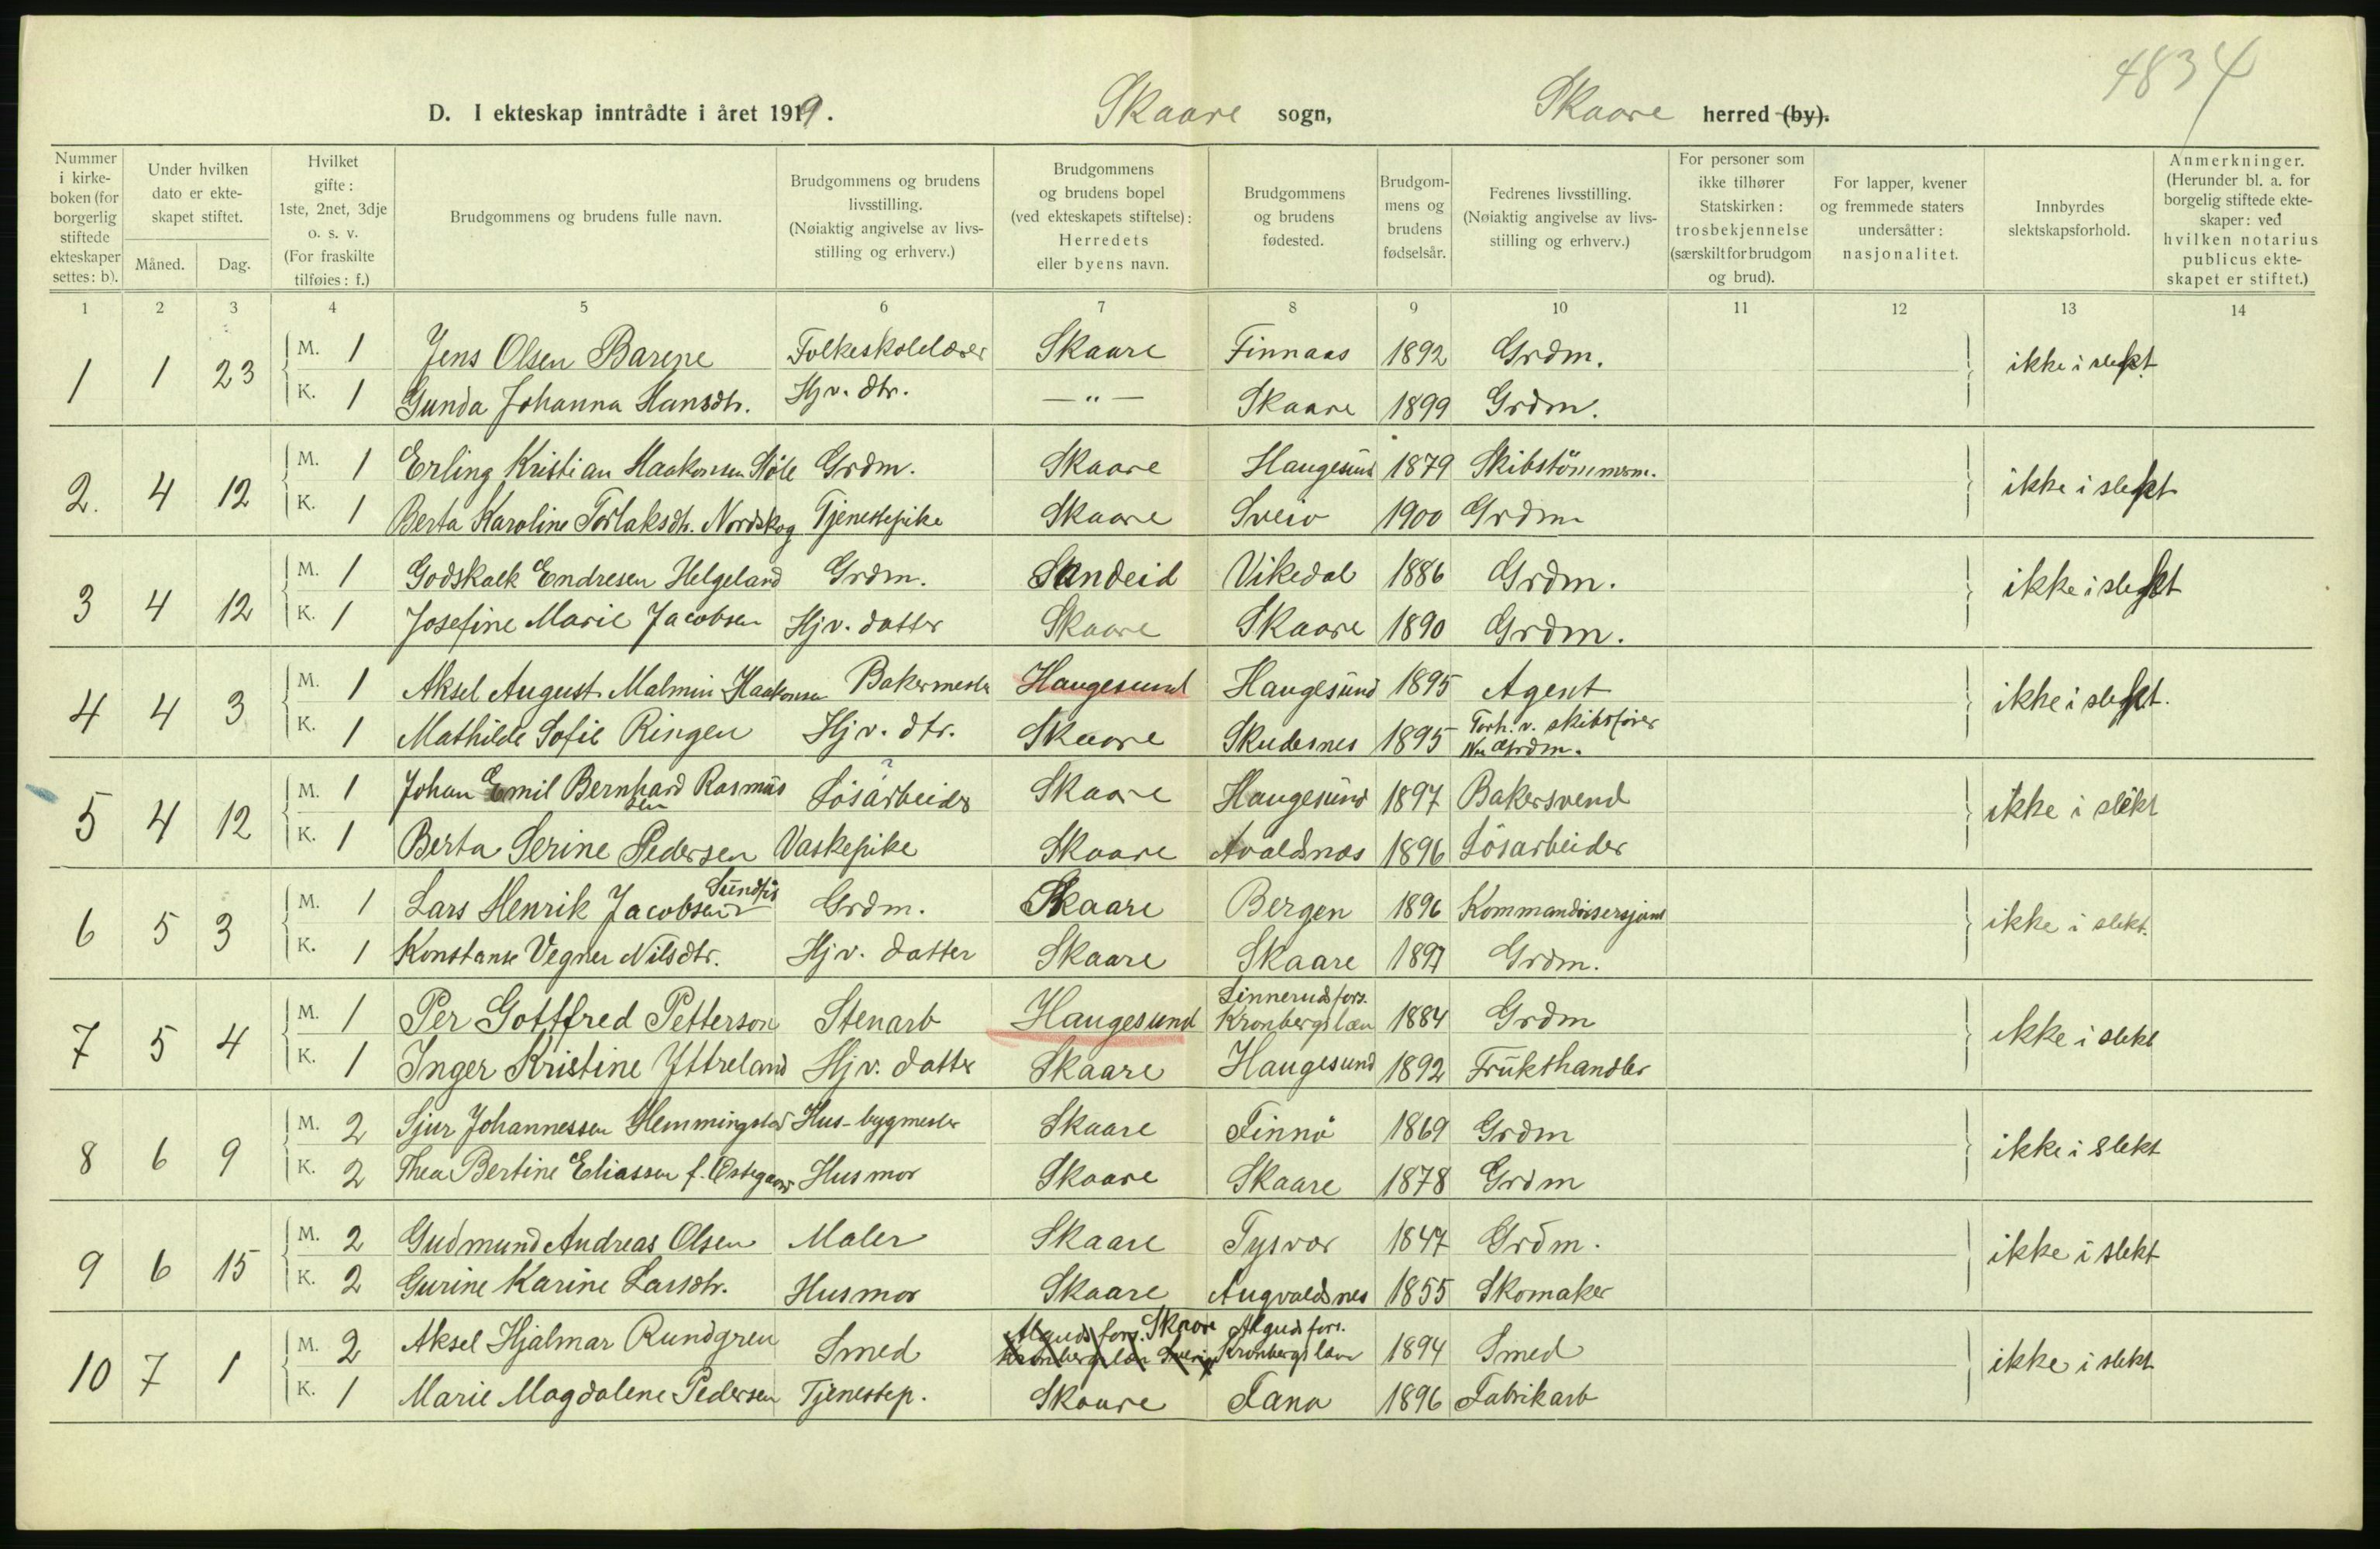 4834
D. I ekteskap inntrådte i året 1919. Skaare sogn, Skaare herred (by).
Nummer i kirkeboken (for borgerlig stiftede ekteskaper settes: b).
Under hvilken dato er ekteskapet stiftet.
Måned. Dag.
Hvilket gifte: 1ste, 2net, 3dje o. s. v. (For fraskilte tilføies: f.)
Brudgommens og brudens fulle navn.
Brudgommens og brudens livsstilling. (Nøiaktig angivelse av livsstilling og erhverv.)
Brudgommens og brudens bopel (ved ekteskapets stiftelse): Herredets eller byens navn.
Brudgommens og brudens fødested.
Brudgommens og brudens fødselsår.
Fedrenes livsstilling. (Nøiaktig angivelse av livsstilling og erhverv.)
For personer som ikke tilhører Statskirken: trosbekjennelse (særskilt for brudgom og brud).
For lapper, kvener og fremmede staters undersåtter: nasjonalitet.
Innbyrdes slektskapsforhold.
Anmerkninger. (Herunder bl. a. for borgelig stiftede ekteskaper: ved hvilken notarius publicus ekteskapet er stiftet.)
1 2 3 4 5 6 7 8 9 10 11 12 13 14
1 1 23 M. 1 Jens Olsen Barene Folkeskolelærer Skaare Finnaas 1892 Grdm. ikke i slekt
K. 1 Gunda Johanna Hansdtr. Hjv. dtr. — " — Skaare 1899 Grdm.
2. 4 12 M. 1 Erling Kristian Haakonsen Støle Grdm. Skaare Haugesund 1879 Skibstömmerm. ikke i slekt
K. 1 Berta Karoline Torlaksdtr. Nordskog Tjenestepike Skaare Sveio 1900 Grdm
3 4 12 M. 1 Godskalk Endresen Helgeland Grdm. Sandeid Vikedal 1886 Grdm. ikke i slekt
K. 1 Josefine Marie Jacobsen Hjv. datter Skaare Skaare 1890 Grdm.
4 4 3 M. 1 Aksel August Malmin Haakonsen Bakermester Haugesund Haugesund 1895 Agent ikke i slekt.
K. 1 Mathilde Sofie Ringen Hjv. dtr. Skaare Skudesnes 1895 Forh. v. skibsfører Nu Grdm.
5 4 12 M. 1 Johan Emil Bernhard Rasmussen Lösarbeider Skaare Haugesund 1897 Bakersvend ikke i slekt
K. 1 Berta Serine Pedersen Vaskepike Skaare Avaldsnes 1896 Lösarbeider
6 5 3 M. 1 Lars Henrik Jacobsen Grdm. Skaare Bergen 1896 Kommandersersjant ikke i slekt.
K. 1 Konstanse Vegner Nilsdtr. Hjv. datter Skaare Skaare 1897 Grdm.
7 5 4 M. 1 Per Gottfred Petterson Stenarb Haugesund Linneruds fors. Kronbergs læn 1884 Grdm ikke i slekt
K. 1 Inger Kristine Yttreland Hjv. datter Skaare Haugesund 1892 Frukthandler
8 6 9 M. 2 Sjur Johannessen Hemmingstad Hus-bygmester Skaare Finnö 1869 Grdm ikke i slekt
K. 2 Thea Bertine Eliassen f. Østegaard Husmor Skaare Skaare 1878 Grdm
9 6 15 M. 2 Gudmund Andreas Olsen Maler Skaare Tysvær 1847 Grdm. ikke i slekt
K. 2 Gurine Karine Larsdtr. Husmor Skaare Augvaldsnes 1855 Skomaker
10 7 1 M. 2 Aksel Hjalmar Rundgren Smed Alguds fors. Kronbergs læn Sverige Skaare Alguds fors. Kronbergs læn 1894 Smed ikke i slekt
K. 1 Marie Magdalene Pedersen Tjenestep. Skaare Fana 1896 Fabrikarb